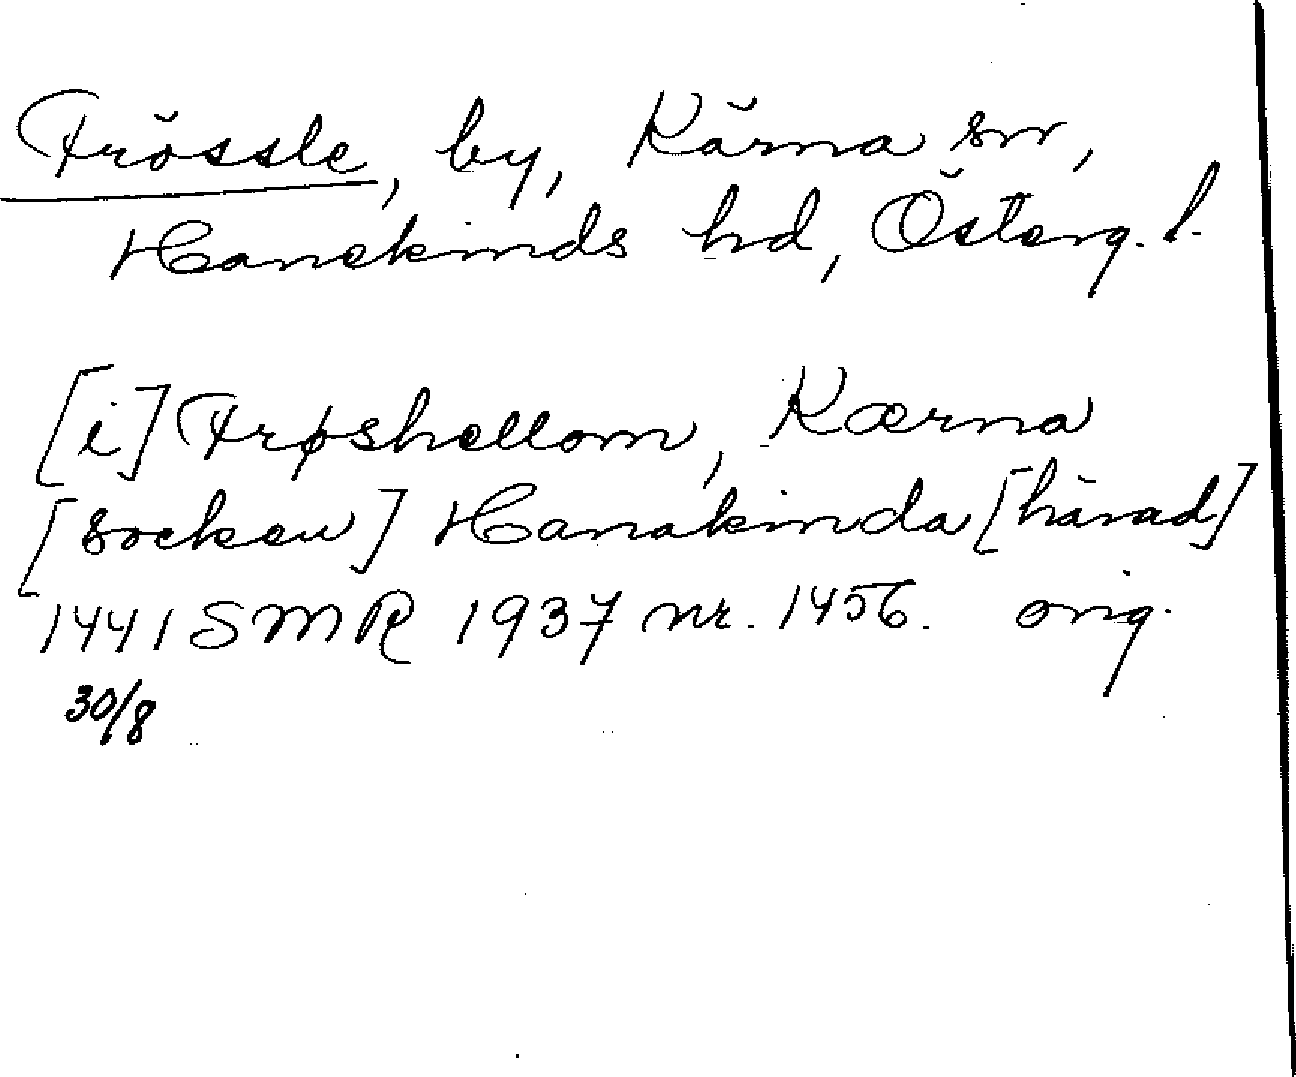 Frössle, by, Kärna sn,
Hanekinds hd, Österg. l.
[i] Frøshellom, Kærna
[socken] Hanakinda [härad]
1441 SMR 1937 nr. 1456. orig.
30/8